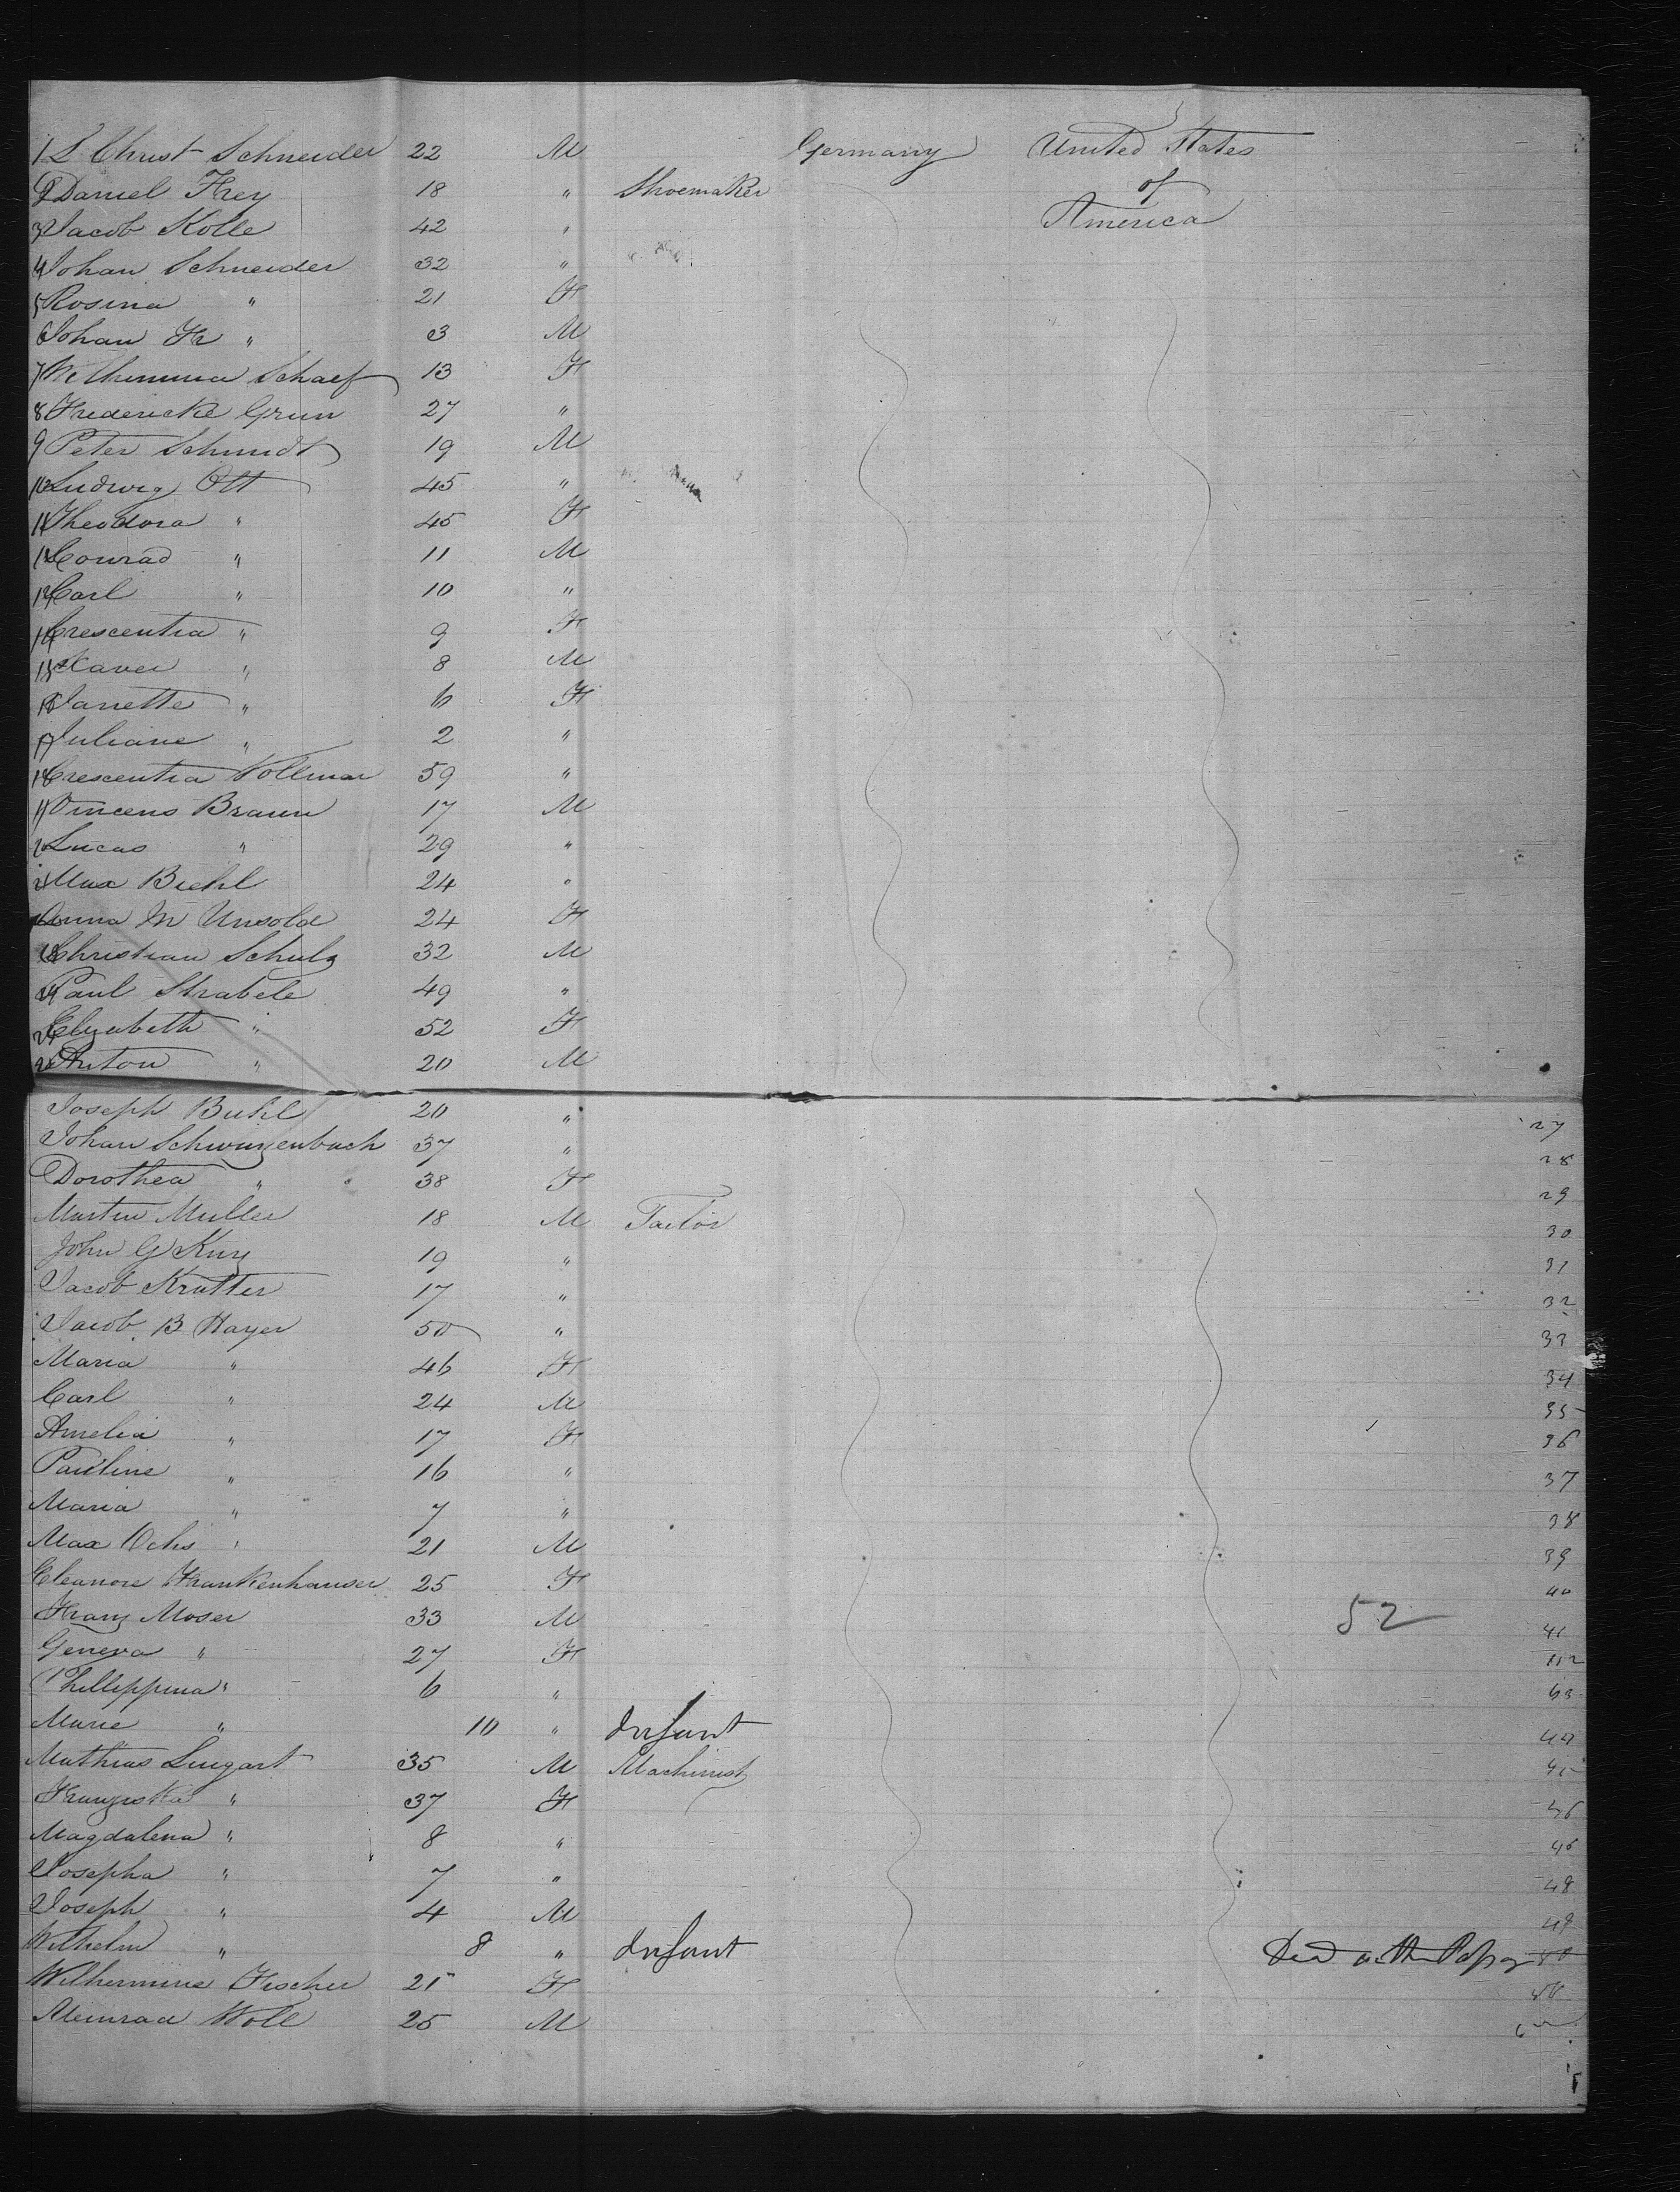 1 L Christ Schneider 22 M Germany United States
2 Daniel Frey 18 " Shoemaker of
3 Jacob Kolle 42 " America
4 Johan Schneider 32 "
5 Rosina " 21 F
6 Johan Fr " 3 M
7 Wilhemina Schaef 13 F
8 Fredericke Grun 27 "
9 Peter Schmidt 19 M
10 Ludwig Ott 45 "
11 Theodora " 45 F
12 Conrad " 11 M
13 Carl " 10 "
14 Crescentia " 9 F
15 Xaver " 8 M
16 Janette " 6 F
17 Juliane " 2 "
18 Crescentia Vollmar 59 "
19 Vincens Braun 17 M
20 Lucas " 29 "
21 Max Biehl 24 "
22 Anna M Unsold 24 F
23 Christian Schulz 32 M
24 Paul Strabele 49 "
25 Elizabeth " 52 F
26 Anton " 20 M
Joseph Buhl 20 " 27
Johan Schwinzenbach 37 " 28
Dorothea " 38 F 29
Martin Muller 18 M Tailor 30
John G Kurz 19 " 31
Jacob Krutter 17 " 32
Jacob B Hayer 50 " 33
Maria " 46 F 34
Carl " 24 M 35
Amelia " 17 F 36
Pauline " 16 " 37
Maria " 7 " 38
Max Ochs " 21 M 39
Eleanore Frankenhauser 25 F 40
Franz Moser 33 M 52 41
Geneva " 27 F 42
Phillippina " 6 " 43
Marie " 10 " Infant 44
Mathias Lingart 35 M Machinist 45
Franziska " 37 F 46
Magdalena " 8 " 46
Josepha " 7 " 48
Joseph " 4 M 49
Wilhelm " 8 " Infant Died on the 50
Wilhermine Fischer 21 F
Meinrad Woll 25 M